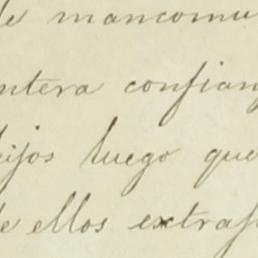 de mancomu
ntera confian
hijos luego que
de ellos extraj